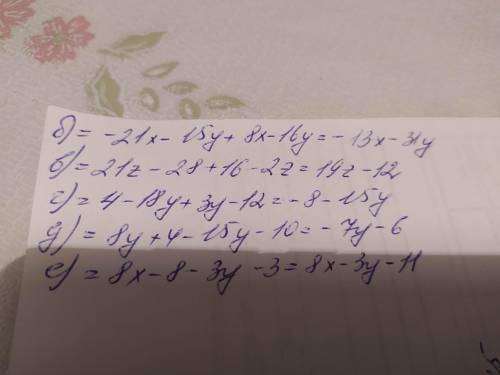 б) = -21x - 15y + 8x - 16y = - 13x - 31y
б) = 21z - 28 + 16 - 2z = 19z - 12
г) = 4 - 18y + 3y - 12 = - 8 - 15y
д) = 8y + 4 - 15y - 10 = - 7y - 6
е) = 8x - 8 - 3y - 3 = 8x - 3y - 11